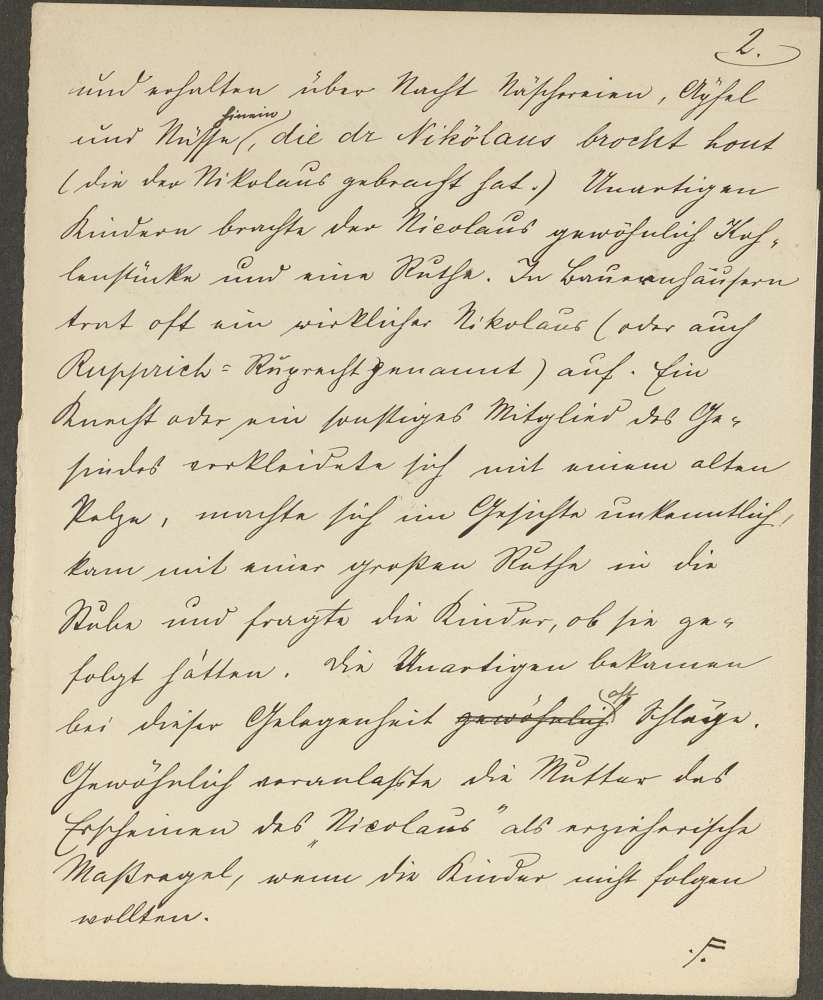 2.
und erhalten über Nacht Näschereien, Äpfel
hinein
und Nüsse, die dr Nikólaus brocht hout
(die der Nikolaus gebracht hat.) Unartigen
Kindern brachte der Nicolaus gewöhnlich Koh-
lenstücke und eine Ruthe. In Bauernhäusern
trat oft ein wirklicher Nikolaus (oder auch
Rupprich = Ruprecht genannt) auf. Ein
Knecht oder ein sonstiges Mitglied des Ge-
sindes verkleidete sich mit einem alten
Pelze, machte sich im Gesichte unkenntlich,
kam mit einer großen Ruthe in die
Stube und fragte die Kinder, ob sie ge-
folgt hätten. Die Unartigen bekamen
oft
bei dieser Gelegenheit gewöhnlich Schläge.
Gewöhnlich veranlaßte die Mutter das
Erscheinen des „Nicolaus" als erzieherische
Maßregel, wenn die Kinder nicht folgen
wollten.